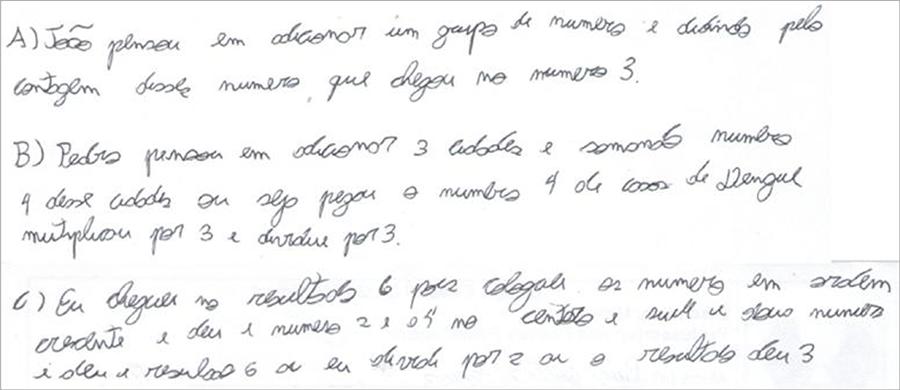 A) João pensou em adicionar um grupo de numero e dividindo pelo
contagem desse numero, que chegou no numero 3.
B) Pedro pensou em adicionar 3 cidades e somando numero
4 desse cidades ou seja pegou o numero 4 de casos de Dengue
mutiplicou por 3 e dividiu por 3.
C) Eu cheguei no resultado 6 pois coloquei os numero em ordem
credente e deu e numero 2 e o 4 no centro e esses dois numero
e deu o resultado 6 ai eu dividi por 2 ai o resultado deu 3